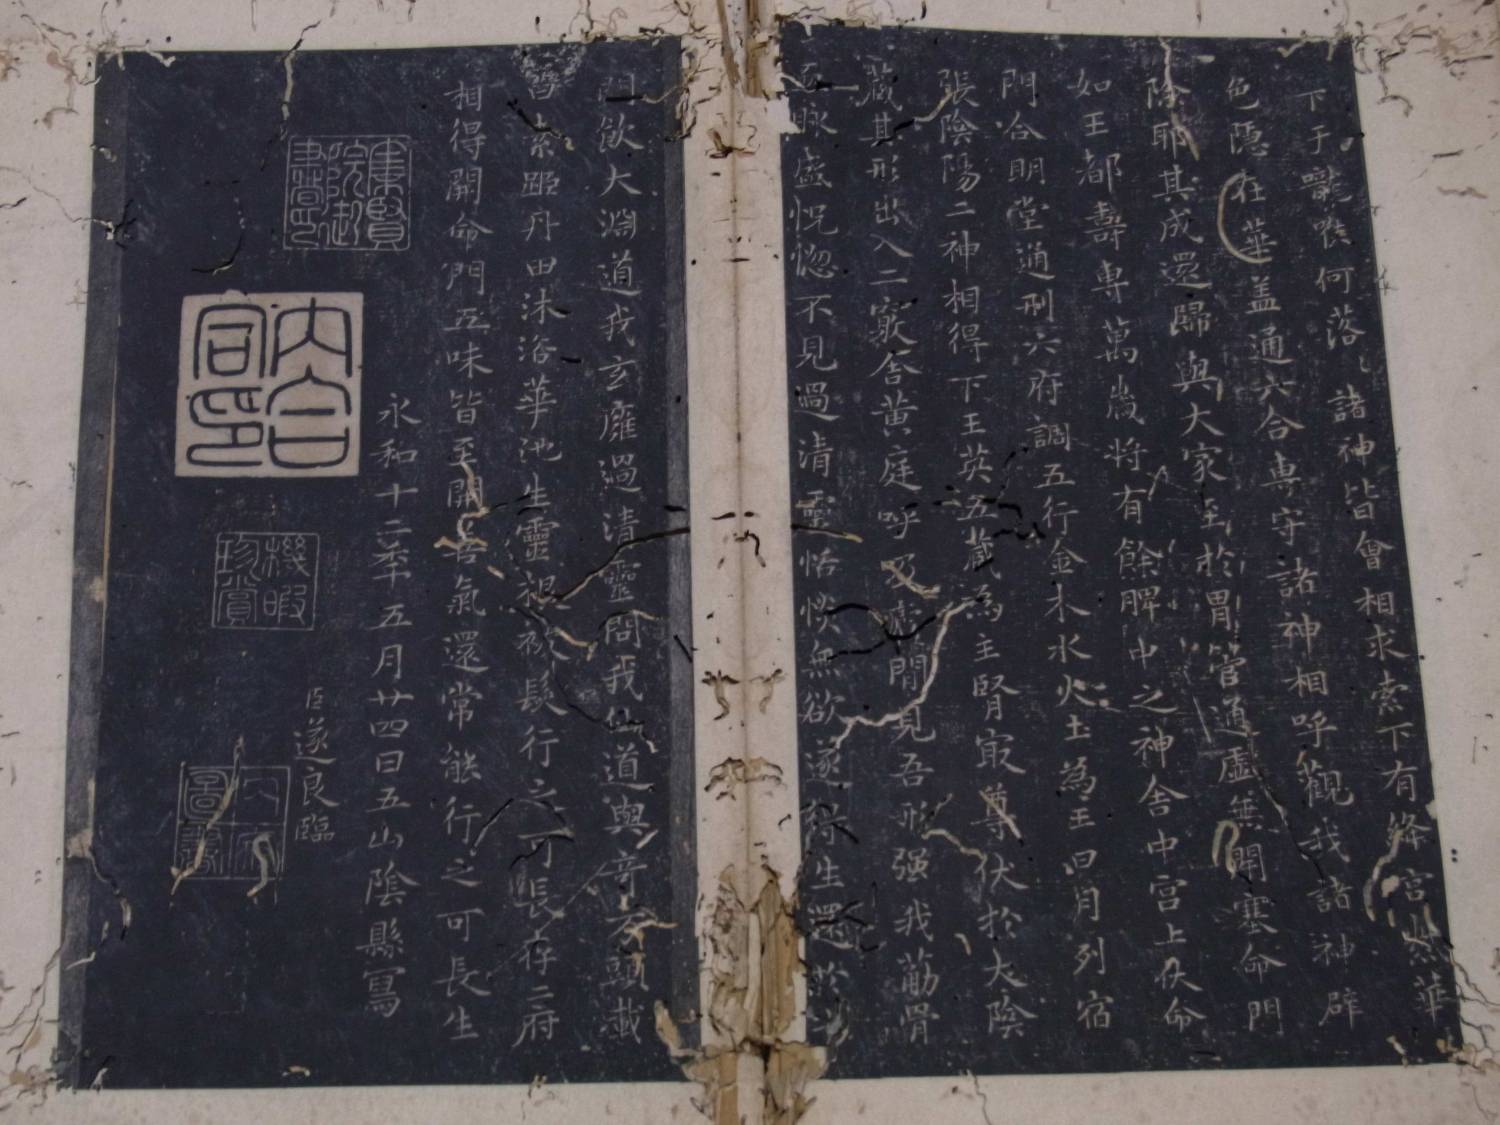 下于嚨喉何落〻諸神皆會相求索下有絳宮紫華
色隱在華蓋通六合專守諸神相呼觀我諸神辟
除耶其成還歸與大家至於胃管通虛無閉塞命門
如王都壽專萬歲將有餘脾中之神舍中宮上伏命
門合明堂通利六府調五行金木水火土為王日月列宿
張陰陽二神相得下王英五藏為主腎寂尊伏於大陰
藏其形出入二竅舍黃庭呼及虛間見吾形强我葫骨
脉盛怳惚不見過清靈恬惔無欲遂得生還於
飲大淵道我玄廱過清靈問我仙道與奇方頭載
素距丹田沐浴華池生靈根被髮行之可長存二府
相得開命門五味皆至開善氣還常能行之可長生
永和十二年五月廿四日五山陰縣寫
臣遂良臨
集賢院御書印
內合同印
機暇珍賞